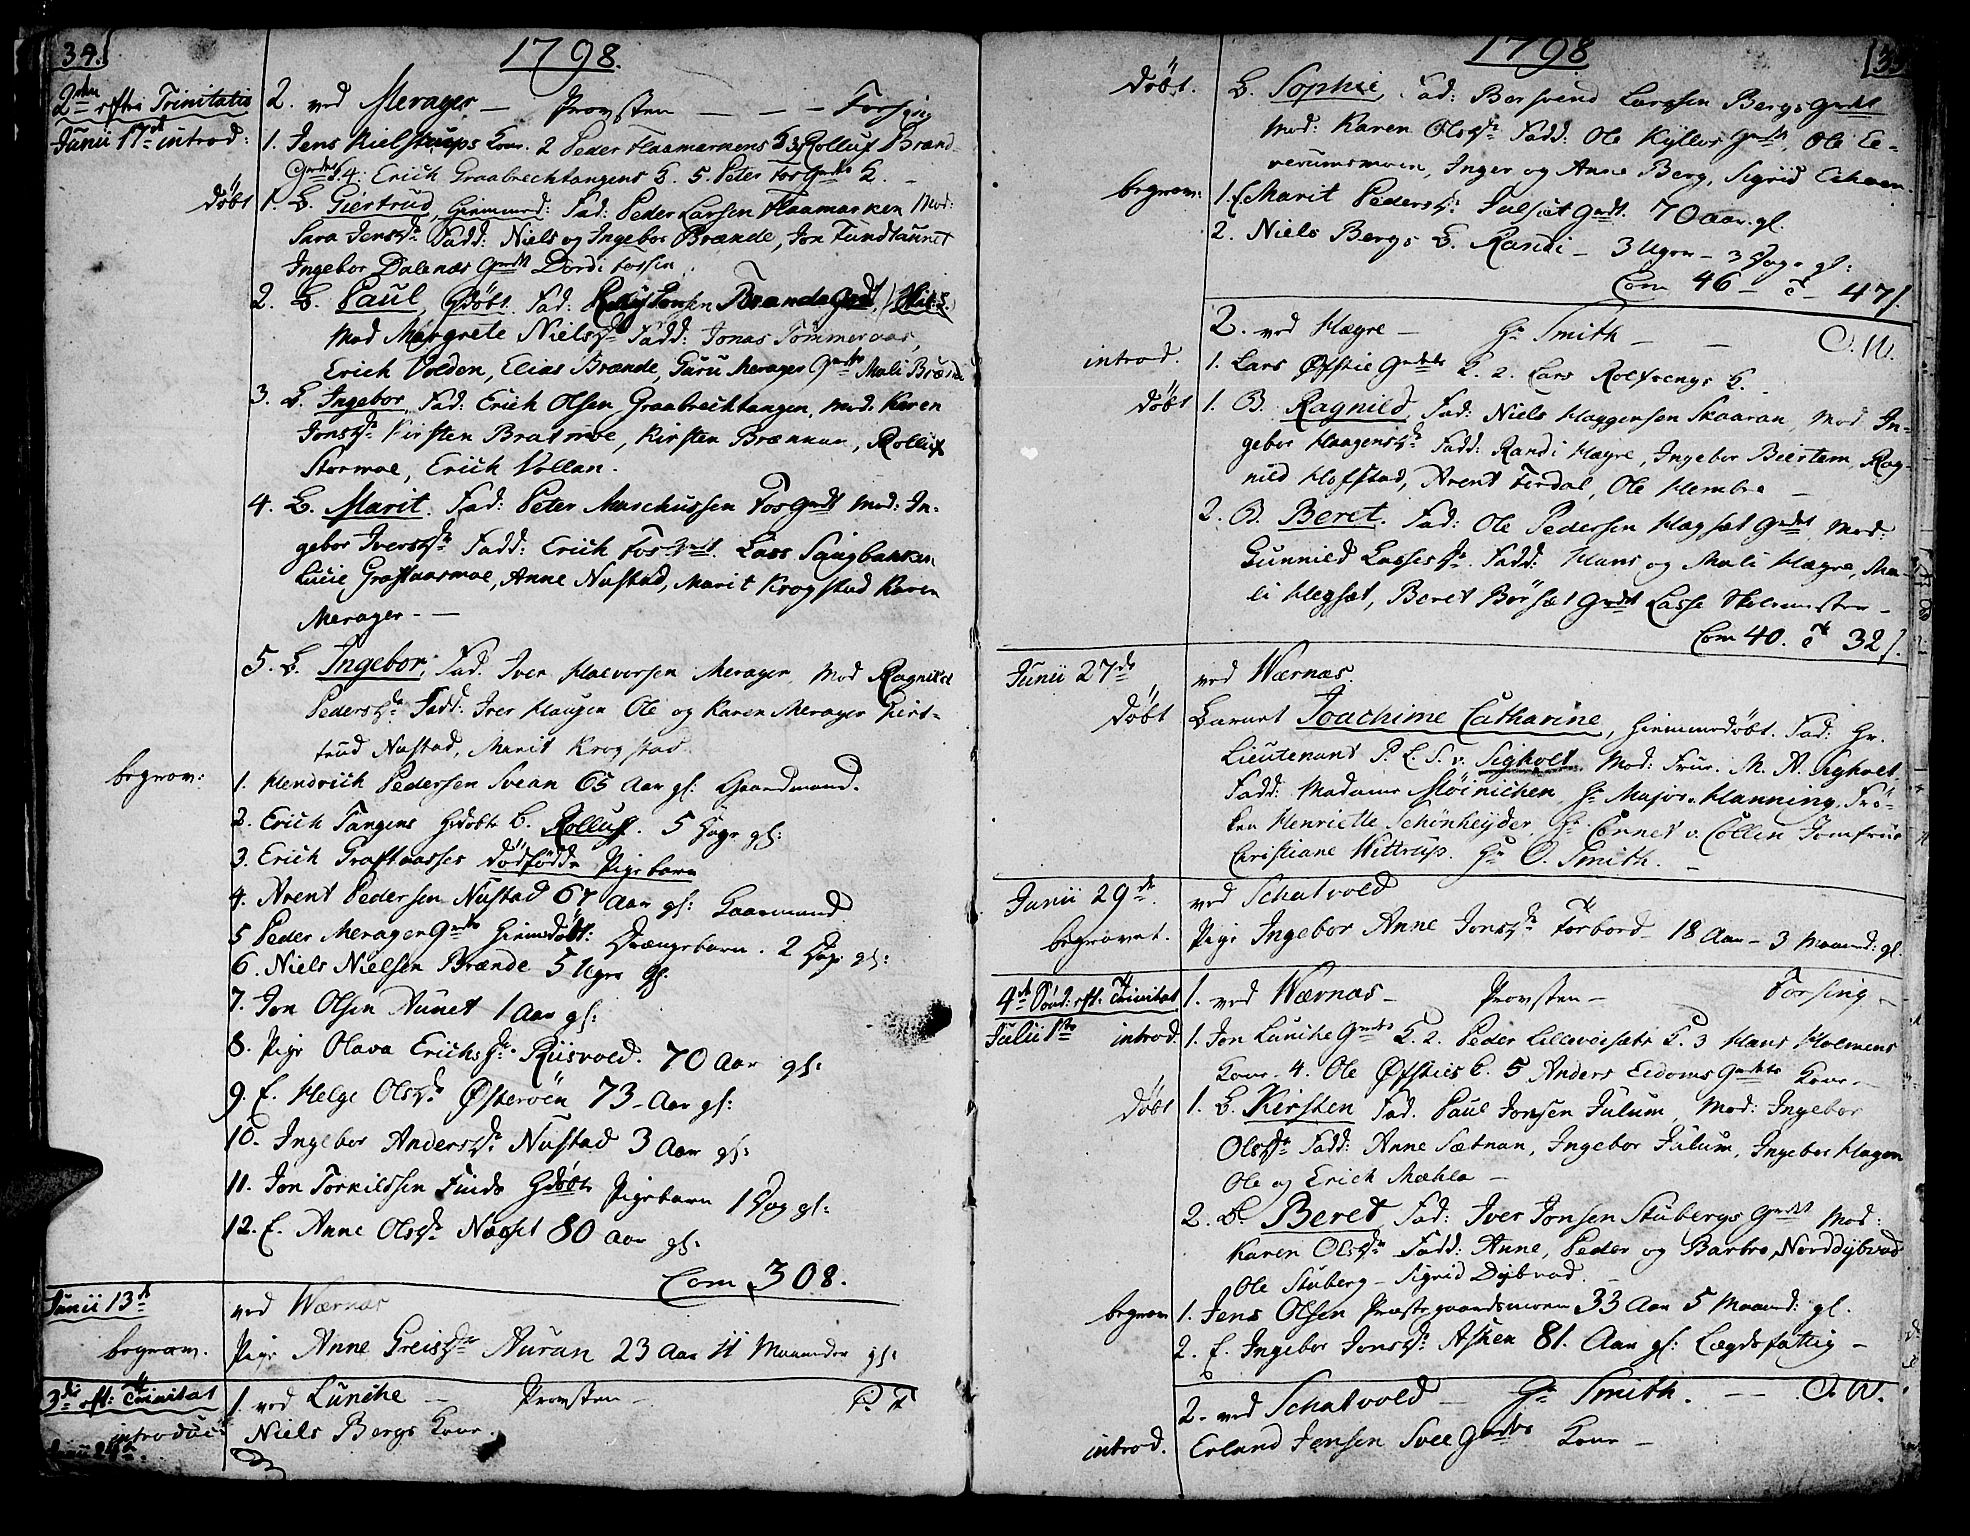 34.
1798.
2den efter Trinitatis 2. ved Meragev — Provsten — — — Forsing
Junii 17de introd: 1. Jens Kielstrups Kone. 2 Peder Flaamarkens K 3 Rolluf Brænd-
4. Erich Graabrechtangens K. 5. Peter Fos K. —
døbt 1. B. Giertrud, Fad: Peder Larsen Flaamarken Mod:
Sara Jensd. Fadd: Niels og Ingebor Brænde, Jon Sundtaunet
Ingebor Dalenæs Gmdt Dordi Fossen.
2. B. Paul, Gdöbt. Fad: Jonsen Brænde
Mod Margrete Nielsd. Fadd: Jonas Tömmeraas,
Erich Volden, Elias Brænde, Guru Merager Gmdt Mali Brænde
3. B. Ingebor, Fad: Erich Olsen Graabrechtangen, Mod: Karen
Jonsd. Kirsten Bratmoe, Kirsten Brænnan, Rolluf
Stormoe, Erich Vollan.
4. B. Marit. Fad: Peter Marchussen Fos Gmdt Mod: In-
gebor Iversd. Fadd: Erich Fos Gmdt. Lars Saugbakken
Lucie Graftaasmoe, Anne Nustad, Marit Krogstad Karen
Merager — —
5. B. Ingebor, Fad. Iver Halvorsen Merager, Mod Ragnild
Pedersd. Fadd. Iver Haugen Ole og Karen Merager Giert-
trud Nustad, Marit Krogstad
begrav: 1. Hendrich Pedersen Svean 65 Aar gl: Gaardmand.
2. Erich Tangens Gdöbte B. Rolluf. 5 Dage gl:
3. Erich Graftaasses dödfödde Pigebarn
4. Arent Pedersen Nustad 67 Aar gl: Gaarmand
5 Peder Merager Gmdts hiemdöbt: Drængebarn. 2 Dage gl:
6. Niels Nielsen Brænde 5 Uger gl.
7. Jon Olsen Aunet 1 Aar gl:
8. Pige Olava Erichsd. Riisvold. 70 Aar gl:
9. E. Helge Olsd. Østeröen 73 Aar gl:
10. Ingebor Andersd. Nustad 3 Aar gl:
11. Jon Torkildsen Gdöbte Pigebarn 1 Dag gl:
12. E. Anne Olsd. Næsset 80 Aar gl:
Com. 308.
Junii 13de ved Wærnæs
begravn. Pige Anne Greisd. Auran 23 Aar 11 Maaneder gl:
3die eft: Trinitat 1. ved Lunche — Provsten — P. T
introduc: Niels Bergs Kone.
Junii 24de.
1798
35
Døbt. B. Sophie, Fad: Bersvend Larssen Bergs Gmdt
Mod: Karen Olsd. Fadd: Ole Kylloe Gmdt, Ole Le-
verumsmoen, Inger og Anne Berg, Sigrid
begrav: 1. E Marit Pedersd. Julset Gmdt. 70 Aar. gl.
2. Niels Bergs B. Randi — 3 Uger — 3 Dage gl:
Com 46 — c — 47 s.
2. ved Hegre — Hr Smith — — O. W.
introd. 1. Lars Øfstie Gmdts K. 2. Lars Rolfsengs K.
døbt 1. B. Ragnild, Fad: Niels Haggensen Skaaran, Mod In-
gebor Haagensd. Fadd: Randi Hegre, Ingebor Biertem, Rag-
nild Hofstad, Arent Firdal, Ole Hembre —
2. B. Beret. Fad: Ole Pedersen Hægset Gmdt, Mod:
Gunnild Lassesd. Fadd: Hans og Mali Hægre, Ma-
li Hegset, Beret Börset Gmdt Lasse Skolemester —
Com 40. c 32 s.
Junii 27de ved Wærnæs.
døbt Barnet Joachime Catharine, Hiemmedöbt. Fad: Hr.
Lieutenant P. L. S. v. Sigholt Mod: Frue. M. A. Sigholt
Fadd: Madame Möinichen, Hr Major v. Hanning, Frö-
ken Henriette Schönheijder, Hr Cornet v. Cöllen Jomfrue
Christiane Wittrup. Hr O. Smith. —
Junii 29de. ved Schatvold
begravet. Pige Ingebor Anne Jonsd. Forbord 18 Aar — 3 Maaned: gl.
4de Sønd: eft: Trinitat 1. ved Wærnæs — Provsten — Forsing —
Julii 1ste introd. 1. Jon Lunche Gmdts K 2. Peder Lillevoisets K. 3 Hans Holmens
Kone. 4. Ole Øfsties K. 5 Anders Eidoms Gmdts Kone —
døbt 1. B. Kirsten Fad. Paul Jonsen Julum, Mod: Ingebor
Olsd. Fadd: Anne Sætnan, Ingebor Julum, Ingebor Hagen
Ole og Erich Mæhla —
2. B. Beret Fad: Iver Jonsen Stubergs Gmdt Mod:
Karen Olsd. Fadd: Anne, Peder og Barbro Norddybvad
Ole Stuberg — Sigrid Dybvad.
begrav 1. Jens Olsen Præstegaardsmoen 33 Aar 5 Maaned: gl.
2. E. Ingebor Jonsd. Asken 81. Aar gl: Lægdsfattig —
2. ved Schatvold — Hr Smith. — — O. W.
introd. Erland Jensen Svee Gmdts Kone —